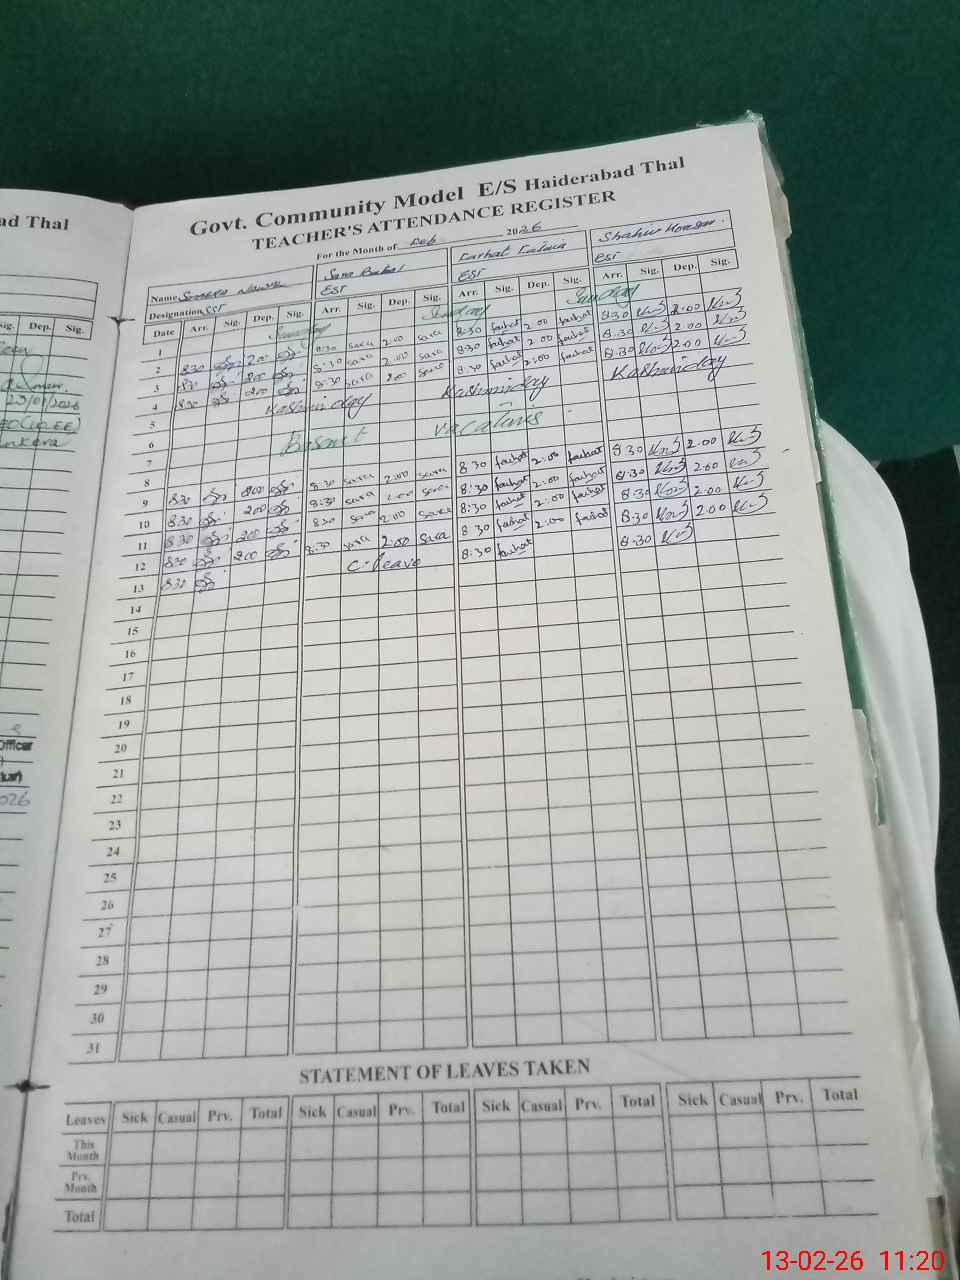 ad Thal
Govt. Community Model E/S Haiderabad Thal
TEACHER'S ATTENDANCE REGISTER
For the Month of Feb 2026
Name
Sara
Farhat
Designation SST EST EST EST
Sig. Dep. Sig.
Date Arr. Sig. Dep. Sig. Arr. Sig. Dep. Sig. Arr. Sig. Dep. Sig. Arr. Sig. Dep. Sig.
1 Sunday Sunday Sunday
2 8:30 200 8:30 sara 2:00 sara 8:30 farhat 2:00 farhat 8:30 2:00
3 8:30 200 8:30 sara 2:00 sara 8:30 farhat 2:00 farhat 8:30 2:00
4 8:30 200 8:30 sara 200 sara 8:30 farhat 2:00 farhat 8:30 2:00
5 Kashmir day Kashmir day Kashmir day
6 Basant vacations
7
8
9 8:30 200 8:30 sara 2:00 sara 8:30 farhat 2:00 farhat 8:30 2:00
10 8:30 200 8:30 sara 2:00 sara 8:30 farhat 2:00 farhat 8:30 2:00
11 8:30 200 8:30 sara 2:00 sara 8:30 farhat 2:00 farhat 8:30 2:00
12 8:30 200 8:30 sara 2:00 sara 8:30 farhat 2:00 farhat 8:30 2:00
13 8:30 C. leave 8:30 farhat 8:30
14
15
16
17
18
19
20
21
22
23
24
25
26
27
28
29
30
31
23/01/2026
Officer
026
STATEMENT OF LEAVES TAKEN
Leaves Sick Casual Prv. Total Sick Casual Prv. Total Sick Casual Prv. Total Sick Casual Prv. Total
This Month
Prv. Month
Total
13-02-26 11:20